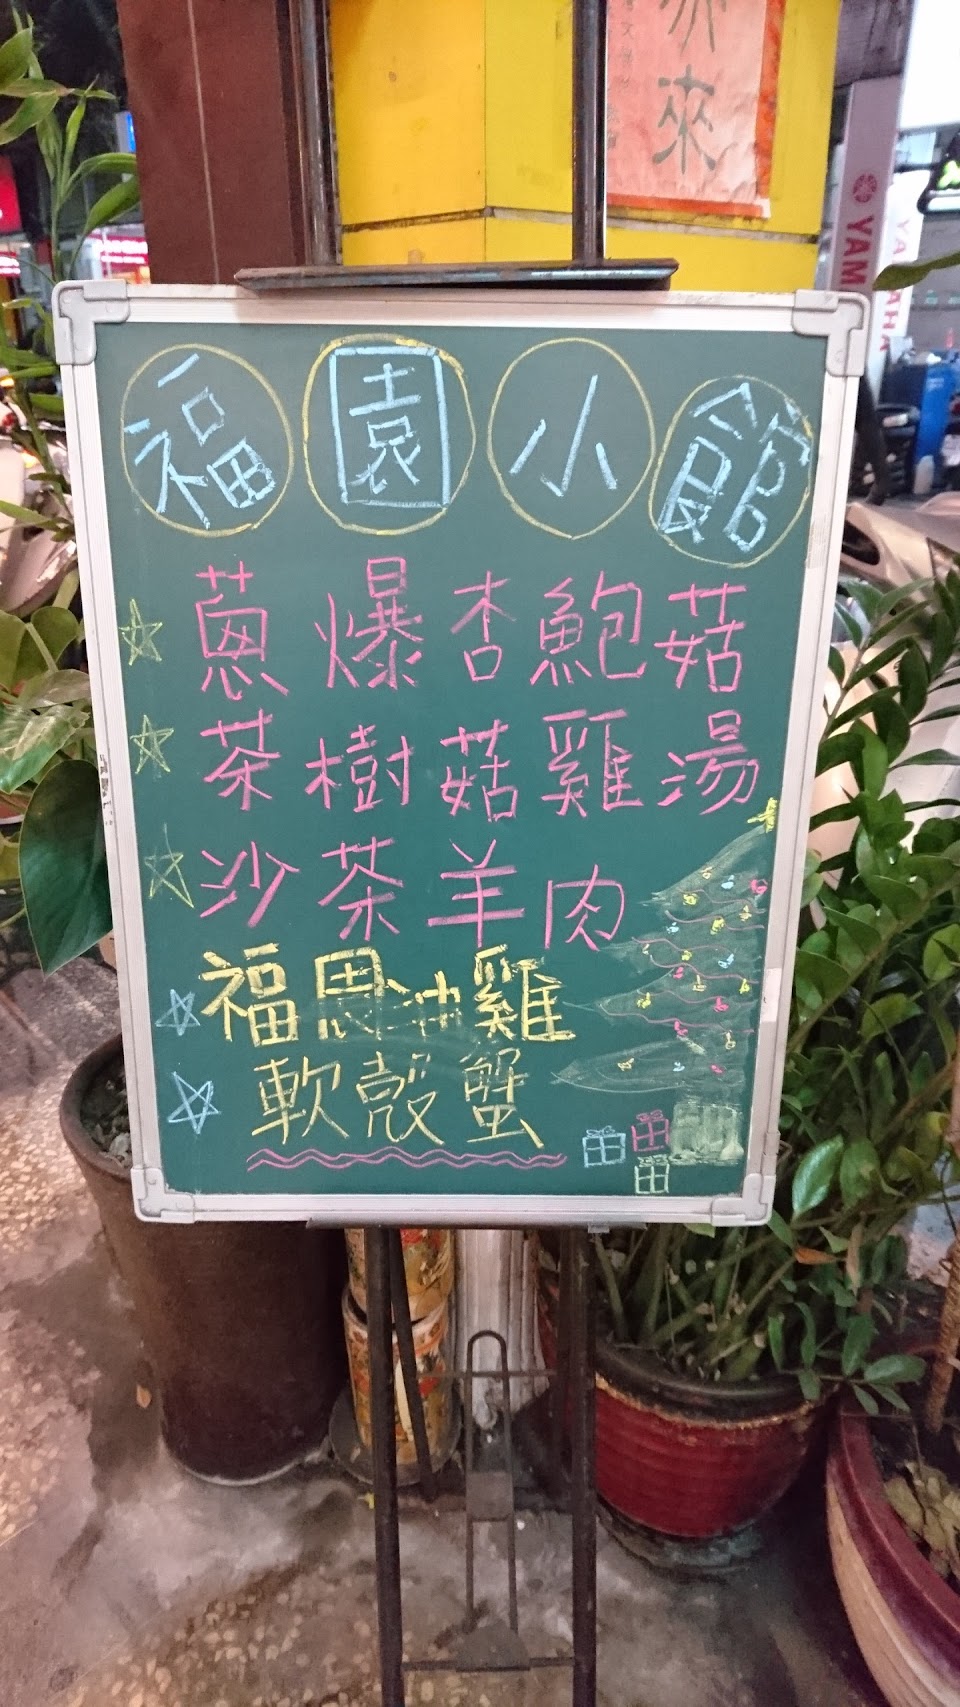 來
YAM
YAMAHA
福園小館
蔥爆杏鮑菇
茶樹菇雞湯
沙茶羊肉
福恩油雞
軟殼蟹